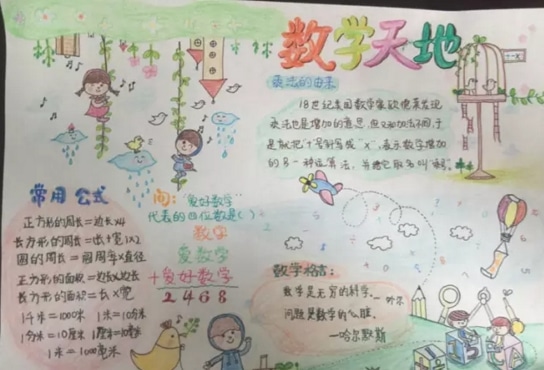 数学天地
乘法的由来
18世纪美国数学家欧德莱发现
乘法也是增加的意思,但又和加法不同,于
是就把"十"号斜写成"×",表示数学增加
的另一种运算法,并把它取名叫"乘号".
常用公式
正方形的周长=边长×4
长方形的周长=(长+宽)×2
圆的周长=圆周率×直径
正方形的面积=边长×边长
长方形的面积=长×宽
1千米=1000米 1米=10分米
1分米=10厘米 1厘米=10毫米
1米=1000毫米
问:"爱好数学"
代表的四位数是( )
数学
爱数学
+爱好数学
2468
数学格言:
数学是无穷的科学.—
问题是数学的心脏.
—哈尔默斯